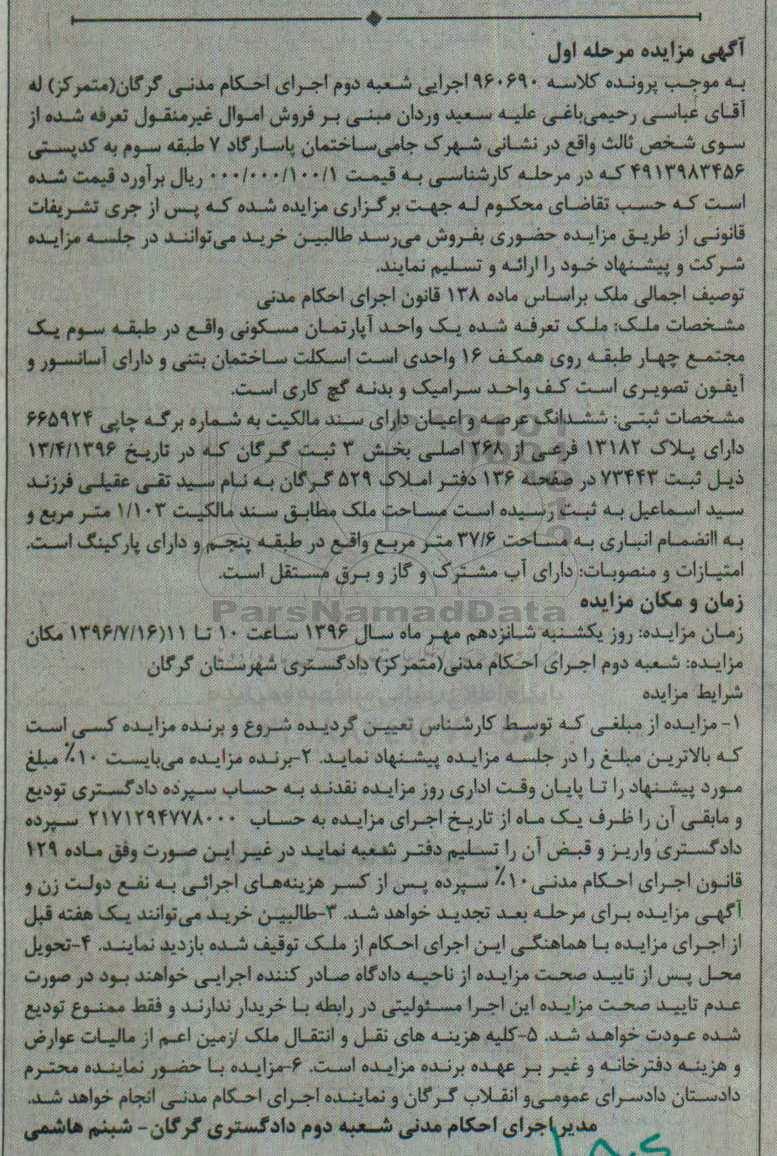 آگهی مزایده مرحله اول
به موجب پرونده کلاسه ۹۶۰۶۹۰ اجرایی شعبه دوم اجرای احکام مدنی گرگان(متمرکز) له
آقای عباسی رحیمی‌باغی علیه سعید وردان مبنی بر فروش اموال غیرمنقول تعرفه شده از
سوی شخص ثالث واقع در نشانی شهرک جامی‌ساختمان پاسارگاد ۷ طبقه سوم به کدپستی
۴۹۱۳۹۸۳۴۵۶ که در مرحله کارشناسی به قیمت ۰۰۰/۰۰۰/۱۰۰/۱ ریال برآورد قیمت شده
است که حسب تقاضای محکوم له جهت برگزاری مزایده شده که پس از جری تشریفات
قانونی از طریق مزایده حضوری بفروش می‌رسد طالبین خرید می‌توانند در جلسه مزایده
شرکت و پیشنهاد خود را ارائه و تسلیم نمایند.
توصیف اجمالی ملک براساس ماده ۱۳۸ قانون اجرای احکام مدنی
مشخصات ملک: ملک تعرفه شده یک واحد آپارتمان مسکونی واقع در طبقه سوم یک
مجتمع چهار طبقه روی همکف ۱۶ واحدی است اسکلت ساختمان بتنی و دارای آسانسور و
آیفون تصویری است کف واحد سرامیک و بدنه گچ کاری است.
مشخصات ثبتی: ششدانگ عرصه و اعیان دارای سند مالکیت به شماره برگه چاپی ۶۶۵۹۲۴
دارای پلاک ۱۳۱۸۲ فرعی از ۲۶۸ اصلی بخش ۳ ثبت گرگان که در تاریخ ۱۳/۴/۱۳۹۶
ذیل ثبت ۷۳۴۴۳ در صفحه ۱۳۶ دفتر املاک ۵۲۹ گرگان به نام سید تقی عقیلی فرزند
سید اسماعیل به ثبت رسیده است مساحت ملک مطابق سند مالکیت ۱/۱۰۳ متر مربع و
به اانضمام انباری به مساحت ۳۷/۶ متر مربع واقع در طبقه پنجم و دارای پارکینگ است.
امتیازات و منصوبات: دارای آب مشترک و گاز و برق مستقل است.
ParsNamadData
زمان و مکان مزایده
زمان مزایده: روز یکشنبه شانزدهم مهر ماه سال ۱۳۹۶ ساعت ۱۰ تا ۱۱(۱۳۹۶/۷/۱۶ مکان
مزایده: شعبه دوم اجرای احکام مدنی(متمرکز) دادگستری شهرستان گرگان
شرایط مزایده
۱- مزایده از مبلغی که توسط کارشناس تعیین گردیده شروع و برنده مزایده کسی است
که بالاترین مبلغ را در جلسه مزایده پیشنهاد نماید. ۲-برنده مزایده می‌بایست ۱۰٪ مبلغ
مورد پیشنهاد را تا پایان وقت اداری روز مزایده نقدند به حساب سپرده دادگستری تودیع
و مابقی آن را ظرف یک ماه از تاریخ اجرای مزایده به حساب ۲۱۷۱۲۹۴۷۷۸۰۰۰ سپرده
دادگستری واریز و قبض آن را تسلیم دفتر شعبه نماید در غیر این صورت وفق ماده ۱۲۹
قانون اجرای احکام مدنی ۱۰٪ سپرده پس از کسر هزینه‌های اجرائی به نفع دولت زن و
آگهی مزایده برای مرحله بعد تجدید خواهد شد. ۳-طالبین خرید می‌توانند یک هفته قبل
از اجرای مزایده با هماهنگی این اجرای احکام از ملک توقیف شده بازدید نمایند. ۴-تحویل
محل پس از تایید صحت مزایده از ناحیه دادگاه صادر کننده اجرایی خواهند بود در صورت
عدم تایید صحت مزایده این اجرا مسئولیتی در رابطه با خریدار ندارند و فقط ممنوع تودیع
شده عودت خواهد شد. ۵-کلیه هزینه های نقل و انتقال ملک /زمین اعم از مالیات عوارض
و هزینه دفترخانه و غیر بر عهده برنده مزایده است. ۶-مزایده با حضور نماینده محترم
دادستان دادسرای عمومی‌و انقلاب گرگان و نماینده اجرای احکام مدنی انجام خواهد شد.
مدیر اجرای احکام مدنی شعبه دوم دادگستری گرگان- شبنم هاشمی